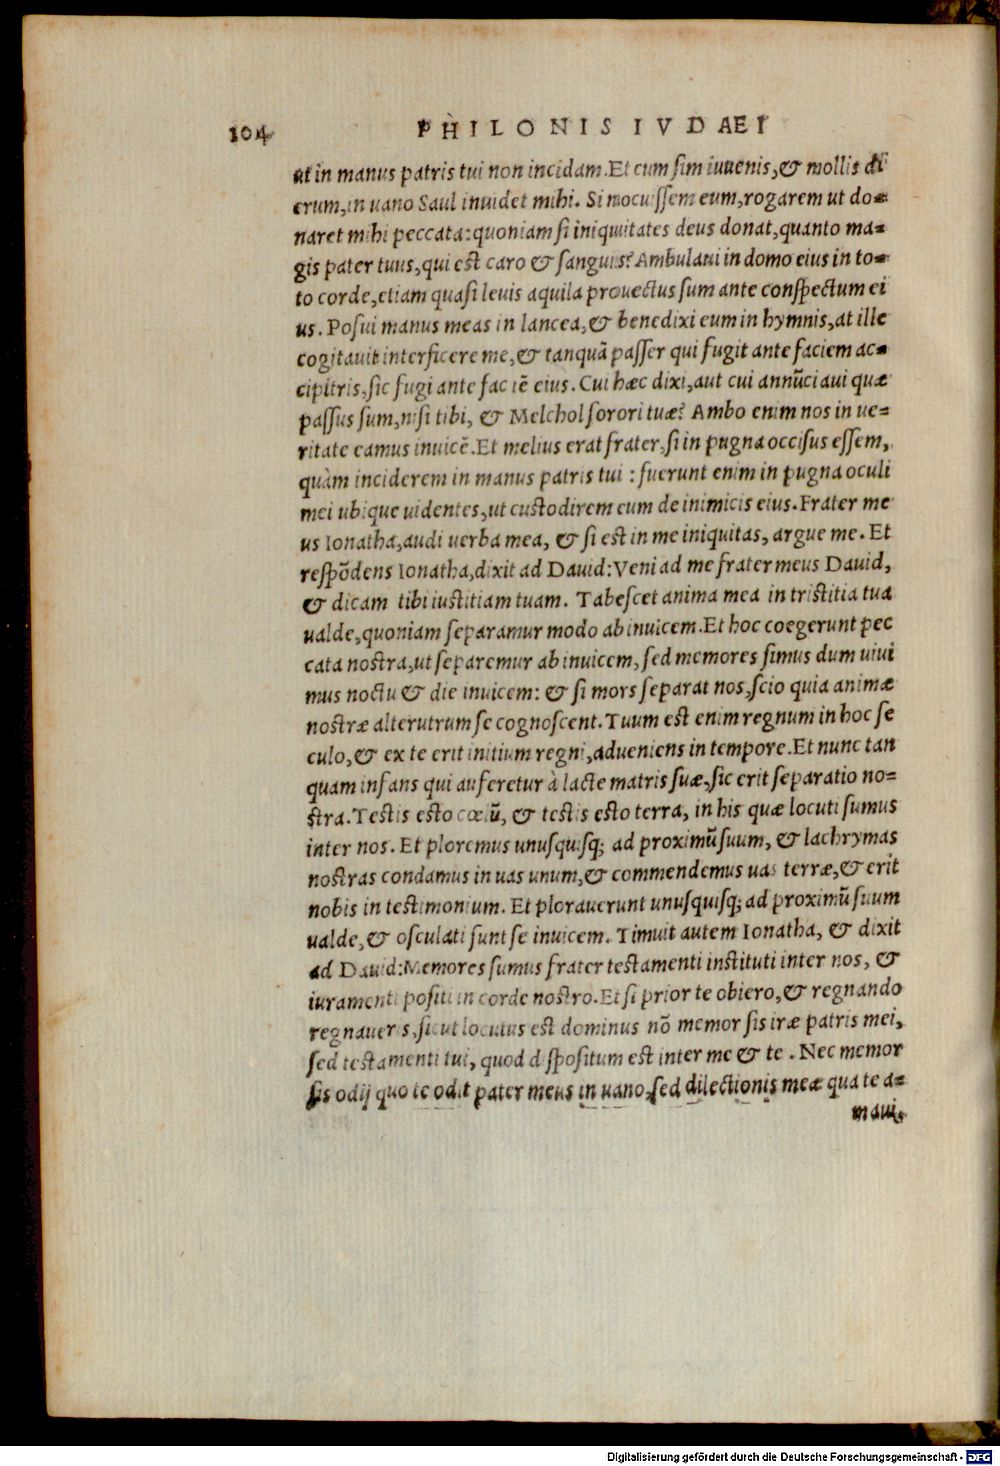 104 PHILONIS IVDAEI
ut in manus patris tui non incidam. Et cum sim iuuenis, & mollis di
erum, in uano Saul inuidet mihi. Si nocuissem eum, rogarem ut do=
naret mihi peccata: quoniam si iniquitates deus donat, quanto ma=
gis pater tuus, qui est caro & sanguis? Ambulaui in domo eius in to=
to corde, etiam quasi leuis aquila prouectus sum ante conspectum ei
us. Posui manus meas in lancea, & benedixi eum in hymnis, at ille
cogitauit interficere me, & tanquā passer qui fugit ante faciem ac=
cipitris, sic fugi ante faciē eius. Cui hæc dixi, aut cui annūciaui quæ
passus sum, nisi tibi, & Melchol sorori tuæ? Ambo enim nos in ue=
ritate eamus inuicē. Et melius erat frater, si in pugna occisus essem,
quàm inciderem in manus patris tui : fuerunt enim in pugna oculi
mei ubique uidentes, ut custodirem eum de inimicis eius. Frater me
us Ionatha, audi uerba mea, & si est in me iniquitas, argue me. Et
respōdens Ionatha, dixit ad Dauid: Veni ad me frater meus Dauid,
& dicam tibi iustitiam tuam. Tabescet anima mea in tristitia tua
ualde, quoniam separamur modo ab inuicem. Et hoc coegerunt pec
cata nostra, ut separemur ab inuicem, sed memores simus dum uiui
mus noctu & die inuicem: & si mors separat nos, scio quia animæ
nostræ alterutrum se cognoscent. Tuum est enim regnum in hoc se
culo, & ex te erit initium regni, adueniens in tempore. Et nunc tan
quam infans qui auferetur à lacte matris suæ, sic erit separatio no=
stra. Testis esto cœlū, & testis esto terra, in his quæ locuti sumus
inter nos. Et ploremus unusquisq; ad proximū suum, & lachrymas
nostras condamus in uas unum, & commendemus uas terræ, & erit
nobis in testimonium. Et plorauerunt unusquisq; ad proximū suum
ualde, & osculati sunt se inuicem. Timuit autem Ionatha, & dixit
ad Dauid: Memores sumus frater testamenti instituti inter nos, &
iuramenti positi in corde nostro. Et si prior te obiero, & regnando
regnaueris, sicut locutus est dominus nō memor sis iræ patris mei,
sed testamenti tui, quod dispositum est inter me & te . Nec memor
sis odij quo te odit pater meus in uano, sed dilectionis meæ qua te a=
maui,
Digitalisierung gefördert durch die Deutsche Forschungsgemeinschaft - DFG